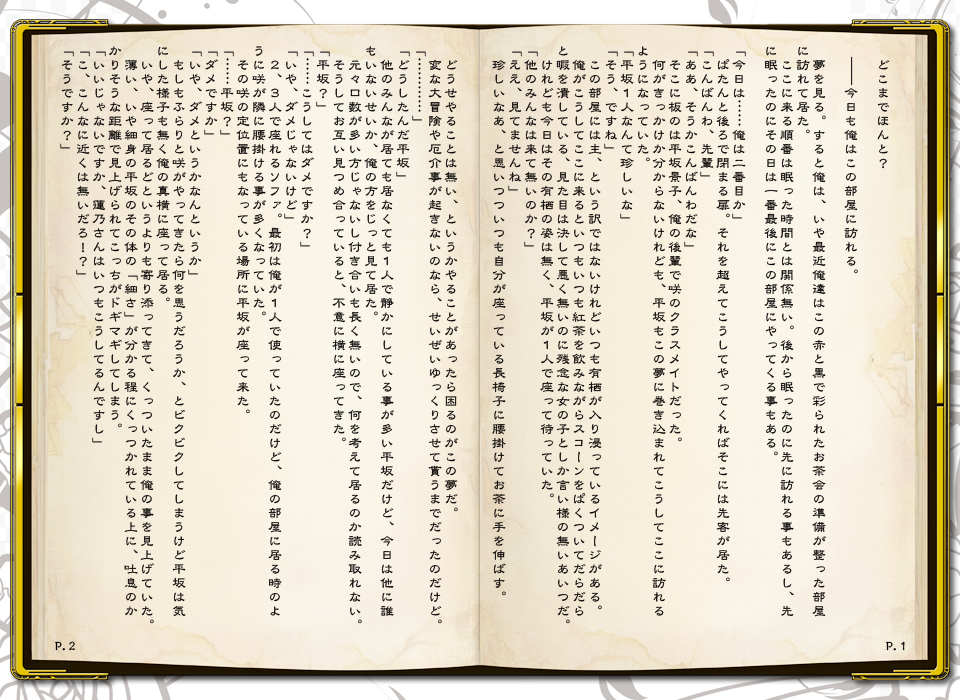 どこまでほんと？
――今日も俺はこの部屋に訪れる。
夢を見る。すると俺は、いや最近俺達はこの赤と黒で彩られたお茶会の準備が整った部屋
に訪れて居る。
ここに来る順番は眠った時間とは関係無い。後から眠ったのに先に訪れる事もあるし、先
に眠ったのにその日は一番最後にこの部屋にやってくる事もある。
「今日は……俺は二番目か」
ぱたんと後ろで閉まる扉。それを超えてこうしてやってくればそこには先客が居た。
「こんばんわ、先輩」
「ああ、そうかこんばんわだな」
そこに坂のは平坂景子、俺の後輩で咲のクラスメイトだった。
何がきっかけか分からないけれども、平坂もこの夢に巻き込まれてこうしてここに訪れる
ようになっていた。
「平坂１人なんて珍しいな」
「そう、ですね」
「他のみんなは来て無いのか？」
「ええ、見てませんね」
この部屋には主、という訳ではないけれどいつも有栖が入り浸っているイメージがある。
俺がこうしてここに来るといつもいつも紅茶を飲みながらスコーンをぱくついてだらだら
と暇を潰している、見た目は決して悪く無いのに残念な女の子としか言い様の無いあいつだ。
けれども今日はその有栖の姿は無く、平坂が１人で座って待っていた。
珍しいなあ、と思いつついつも自分が座っている長椅子に腰掛けてお茶に手を伸ばす。
P.1
どうせやることは無い、というかやることがあったら困るのがこの夢だ。
変な大冒険や厄介事が起きないのなら、せいぜいゆっくりさせて貰うまでだったのだけど。
「………………」
「どうしたんだ平坂」
他のみんなが居ても居なくても１人で静かにしている事が多い平坂だけど、今日は他に誰
もいないせいか、俺の方をじっと見て居た。
元々口数が多い方でもないし付き合いも長く無いので、何を考えて居るのか読み取れない。
そうしてお互い見つめ合っていると、不意に横に座ってきた。
「平坂？」
「………こうしてはダメですか？」
「いや、ダメじゃないけど」
２、３人で座れるソファ。最初は俺が１人で使っていたのだけど、俺の部屋に居る時のよ
うに咲が隣に腰掛ける事が多くなっていた。
その咲の定位置にもなっている場所に平坂が座って来た。
「……平坂？」
「ダメですか」
「いや、ダメというかなんというか」
もしもふらりと咲がやってきたら何を思うだろうか、とビクビクしてしまうけど平坂は気
にした様子も無く俺の真横に座って居る。
いや、座って居るどというよりも寄り添ってきて、くっついたまま俺の事を見上げていた。
薄い、いや細身の平坂のその体の「細さ」が分かる程にくっつかれている上に、吐息のか
かりそうな距離で見上げられてこっちがドギマギしてしまう。
「いいじゃないですか、蓮乃さんはいつもこうしてるんですし」
「こ、こんなに近くは無いだろ！？」
「そうですか？」
P.2